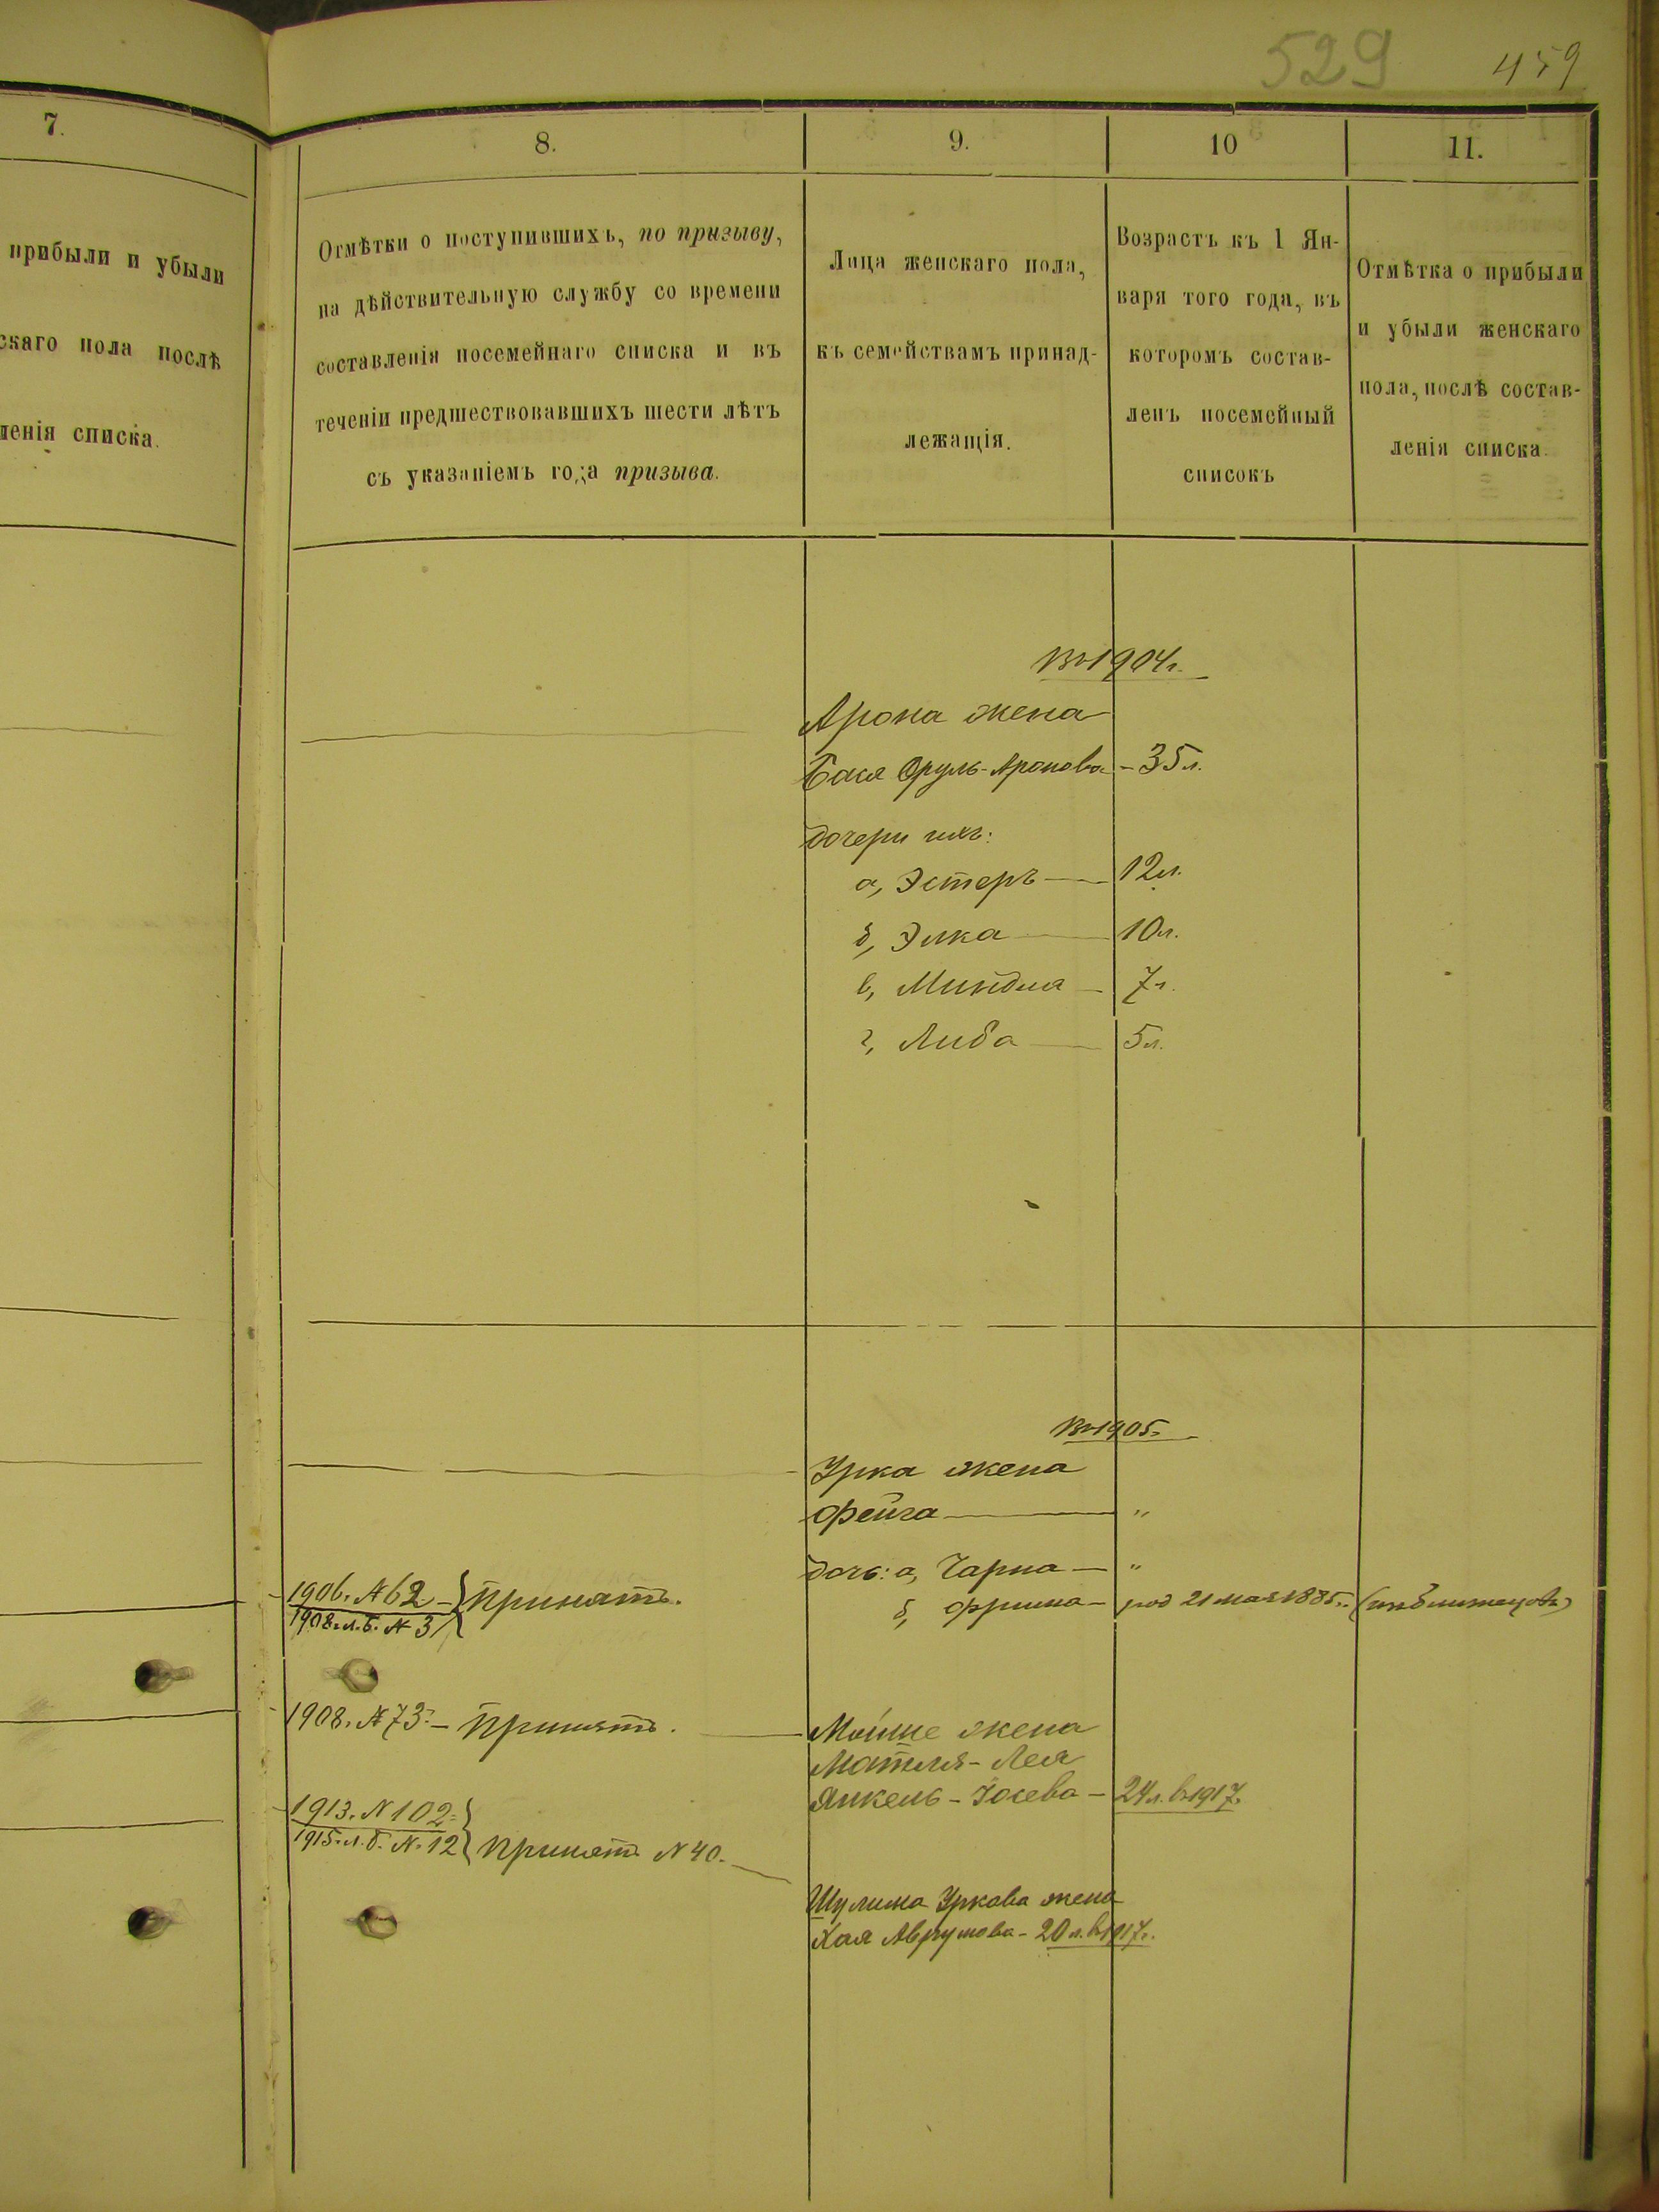 529 459
7.
прибыли и убыли
скаго пола послѣ
ленія списка.
8.
Отмѣтки о поступившихъ, по призыву,
на дѣйствительную службу со времени
составленія посемейнаго списка и въ
теченіи предшествовавшихъ шести лѣтъ
съ указаніемъ года призыва.
9.
Лица женскаго пола,
къ семействамъ принад-
лежащія.
10
Возрастъ къ 1 Ян-
варя того года, въ
которомъ состав-
ленъ посемейный
списокъ
11.
Отмѣтка о прибыли
и убыли женскаго
пола, послѣ состав-
ленія списка.
Въ 1904г.
Арона жена
Бася Сруль-Аронова - 35 л.
дочери ихъ:
а, Эстеръ — 12 л.
б, Элка — 10 л.
в, Миндля — 7 л.
г, Либа — 5 л.
Въ 1905г.
Урка жена
Фейга — "
дочь: а, Чарна — "
1906г. №62 - } Принятъ.
1908г. л.б. № 3
б, Фрима - род 21 мая 1885г. (изъ близнецовъ)
1908г. №73 - Принятъ.
Мойше жена
Матля - Лея
Янкель - Іосева - 24 л. в 1917г.
1913г. N 102 }
1915г. л.б. № 12 Принятъ N 40.
Шулима Уркова жена
Хая Аврумова - 20 л. в 1917г.